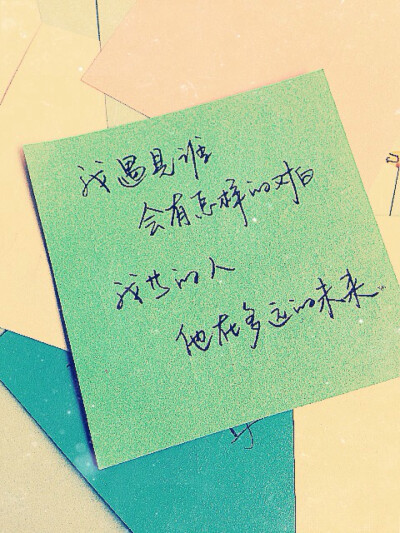 我遇见谁
会有怎样的对白
我等的人
他在多远的未来..